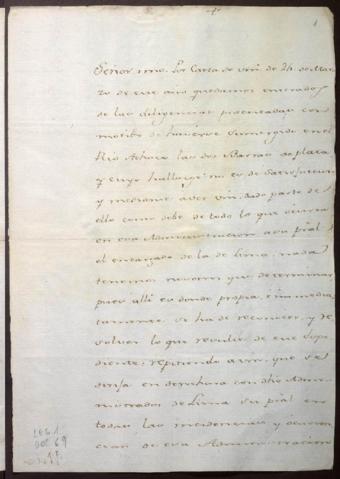 1
Señor mio. Por Carta de vm. de 24. de Mar-
zo de este año quedamos enterados
de las diligencias practicadas con
motibo de haverse sumergido en el
Rio las dos Barras de plata
y cuyo hallazgo nos es de satisfaccion
y mediante aver vm. dado parte de
ello como debe de todo lo que ocurra
en esa Administracion a su pral
el encargado de la de Lima, nada
tenemos nosotros que determinar
pues alli es donde propia, é inmedia-
tamente se ha de reconocer, y re-
solver lo que resulte de este Expe-
diente; repitiendo a vm. que se
dirija en derechura con dho Admi-
nistrador de Lima su pral en
todas las incidencias y ocurren-
cias de esa Administracion
LEG. 1
DOC. 69